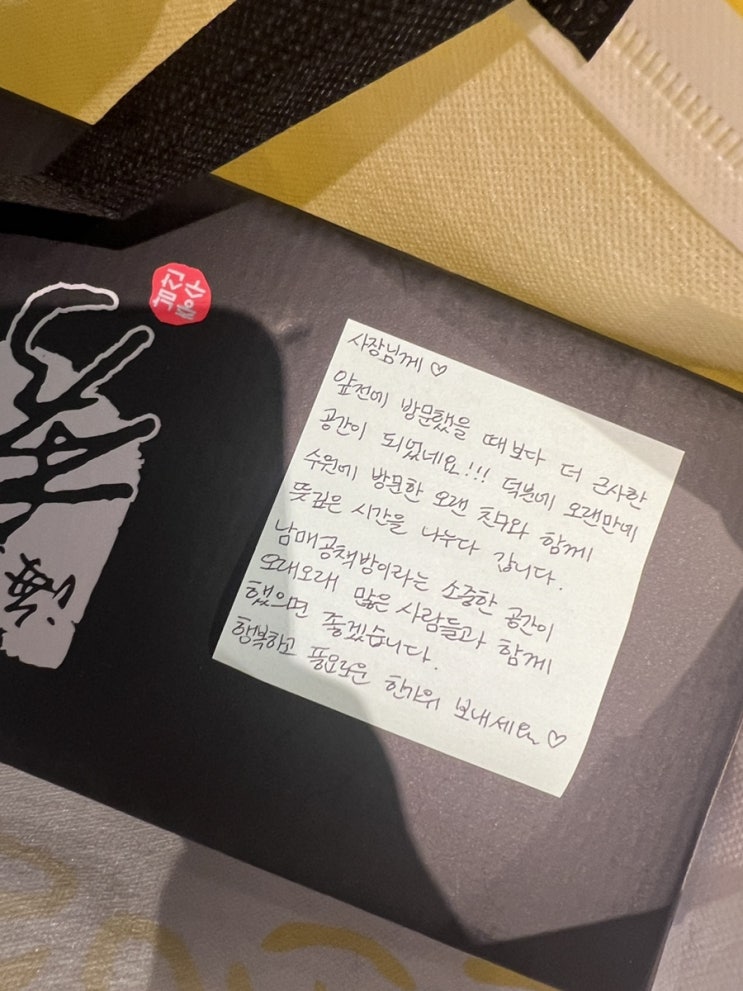 사장님께 ♡
앞전에 방문했을 때보다 더 근사한
공간이 되었네요!!! 덕분에 오랜만에
수원에 방문한 오랜 친구와 함께
뜻깊은 시간을 나누다 갑니다.
남매공책방이라는 소중한 공간이
오래오래 많은 사람들과 함께
했으면 좋겠습니다.
행복하고 풍요로운 한가위 보내세요 ♡